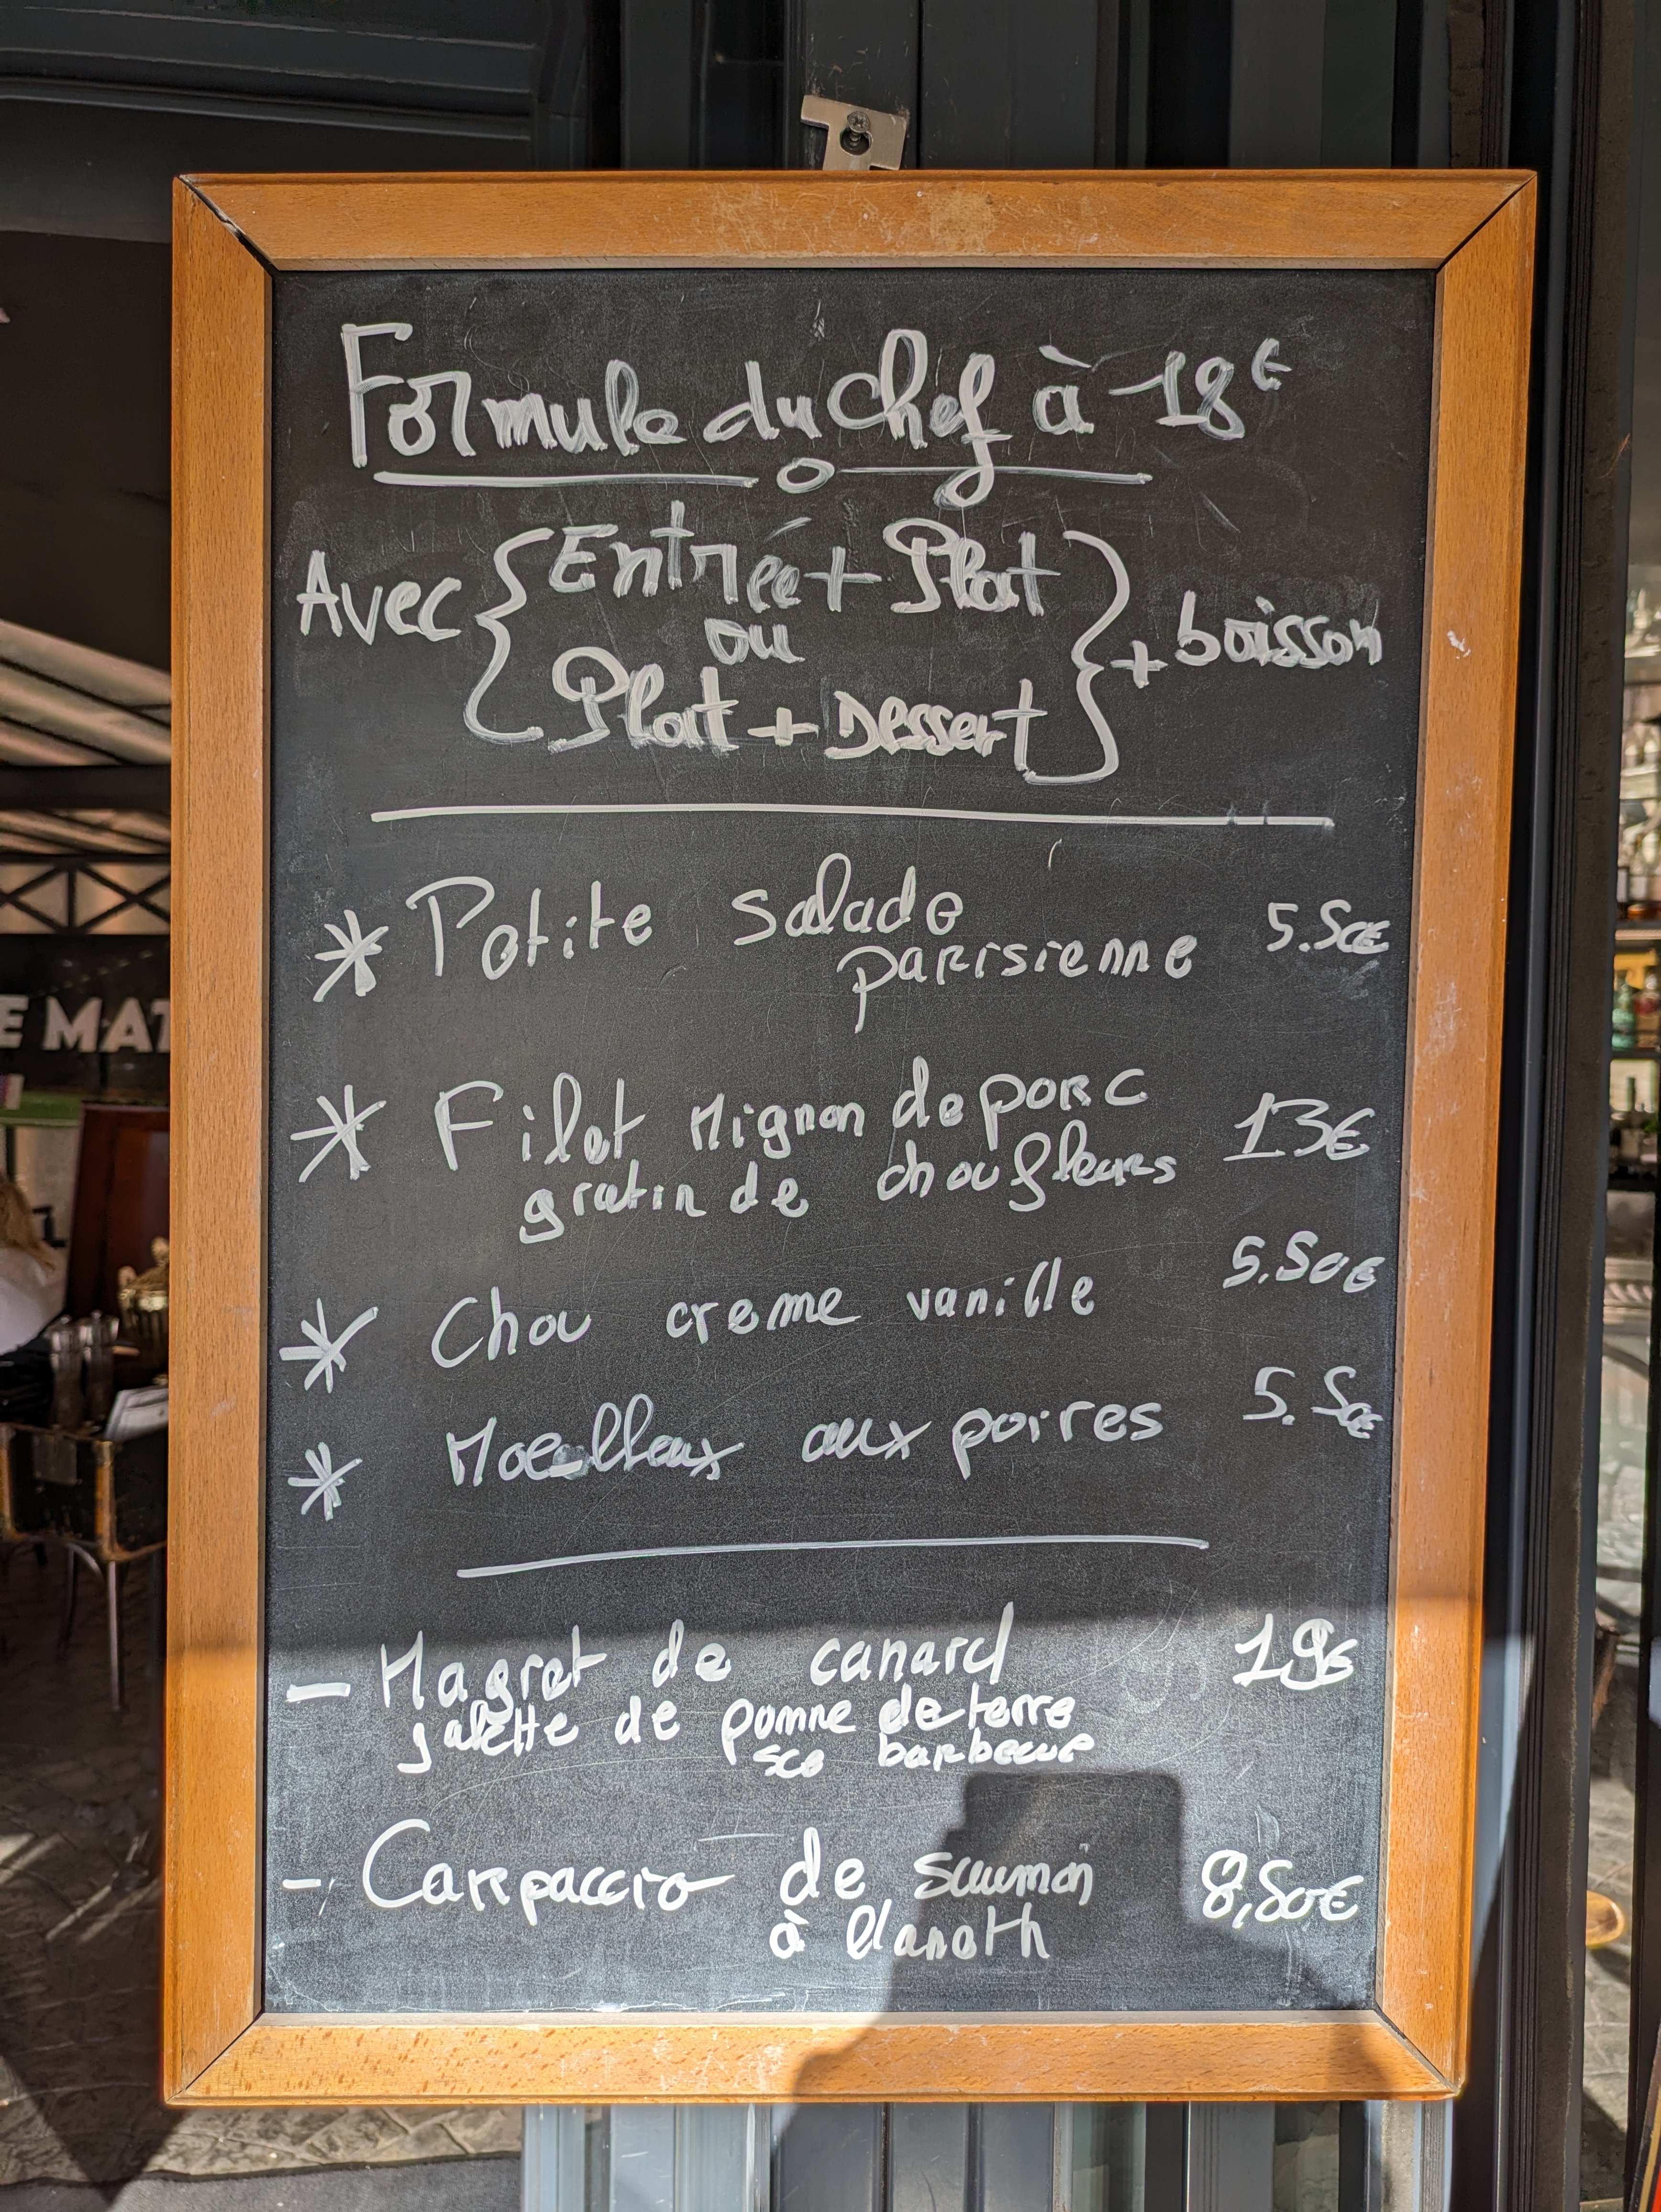 Formule du chef à 18€
Avec { Entrée + Plat
ou
Plat + Dessert } + boisson
* Petite salade
parisienne 5.50€
* Filet Mignon de porc
gratin de choufleurs 13€
* Chou creme vanille 5.50€
* Moelleux aux poires 5.50€
- Magret de canard 19€
galette de pomme de terre
sce barbecue
- Carpaccio de saumon 8,50€
à l'aneth
E MAT